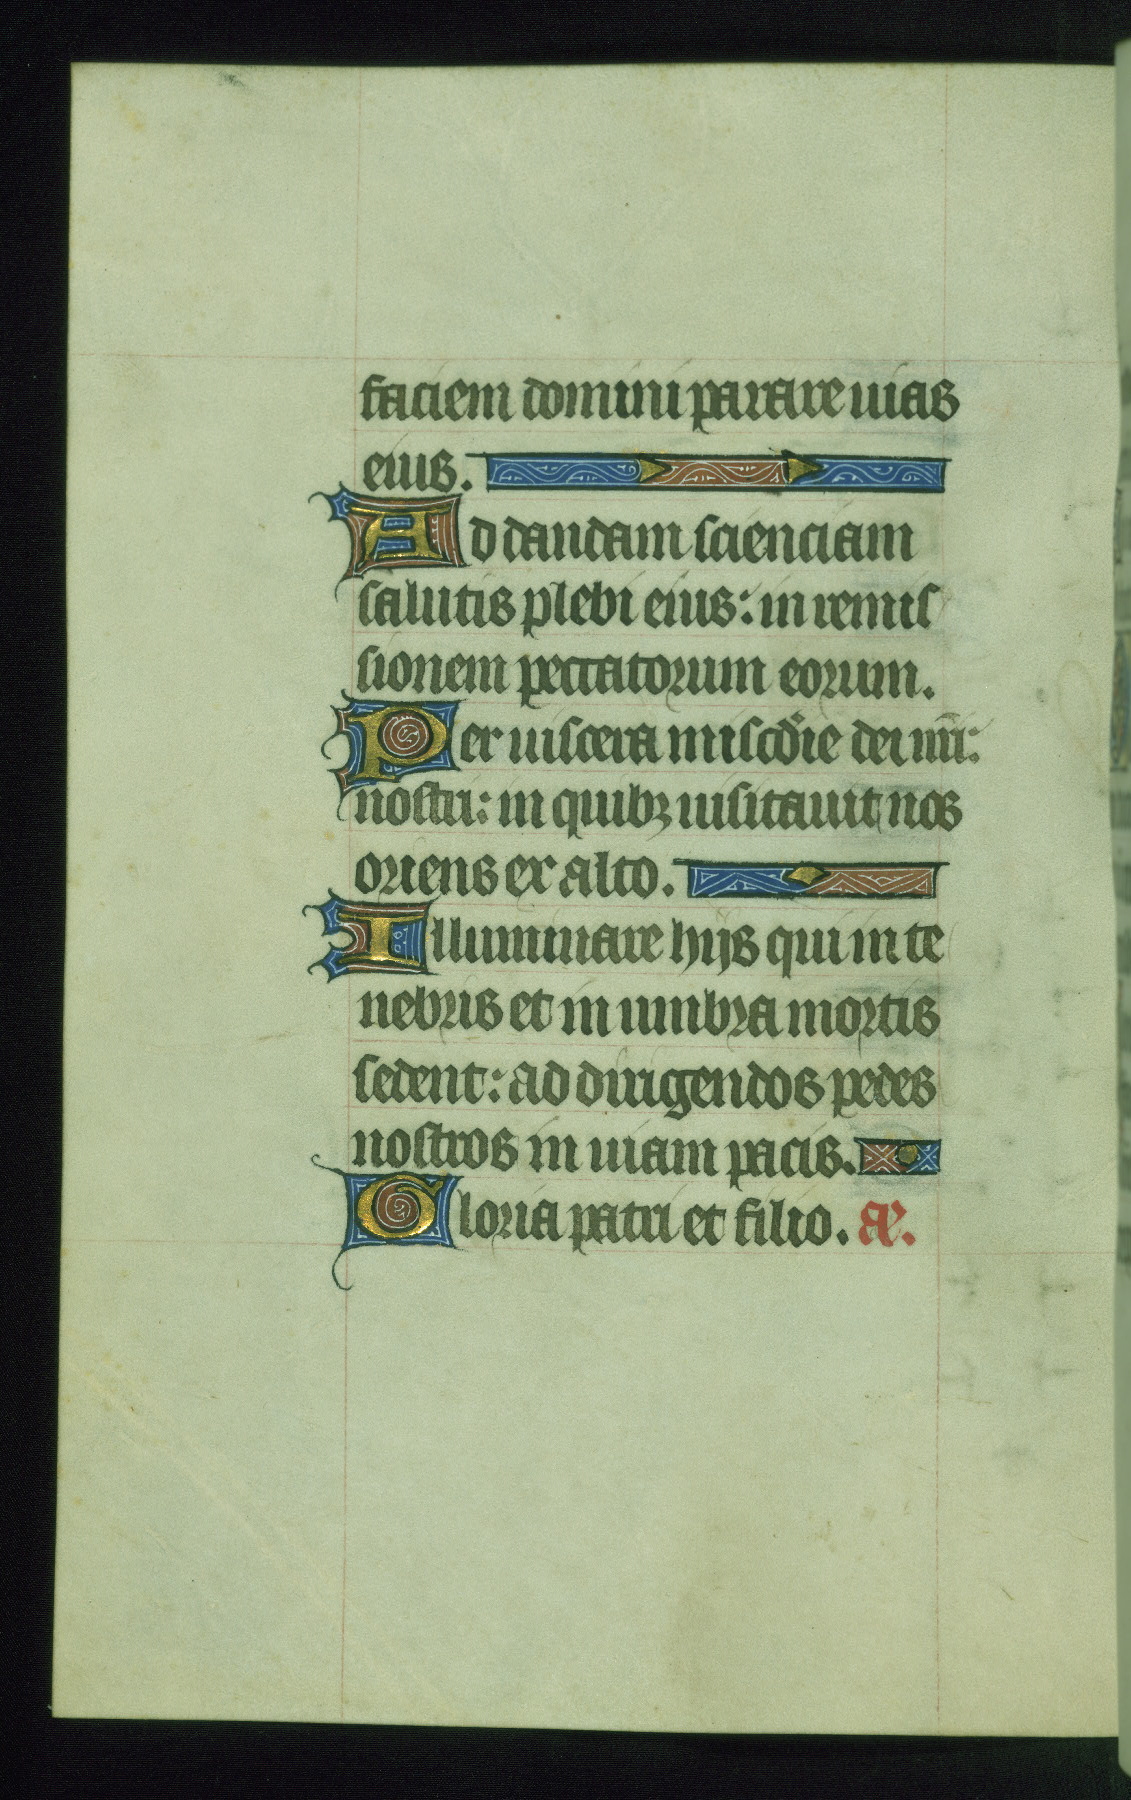 faciem domini parare uias
eius.
Ad dandam scienciam
salutis plebi eius: in remis
sionem peccatorum eorum.
Per uiscera miscd'ie dei nr̄i:
nostri: in quibꝫ uisitauit nos
oriens ex alto.
Illuminare hijs qui in te
nebris et in umbra mortis
sedent: ad dirigendos pedes
nostros in uiam pacis.
Gloria patri et filio.